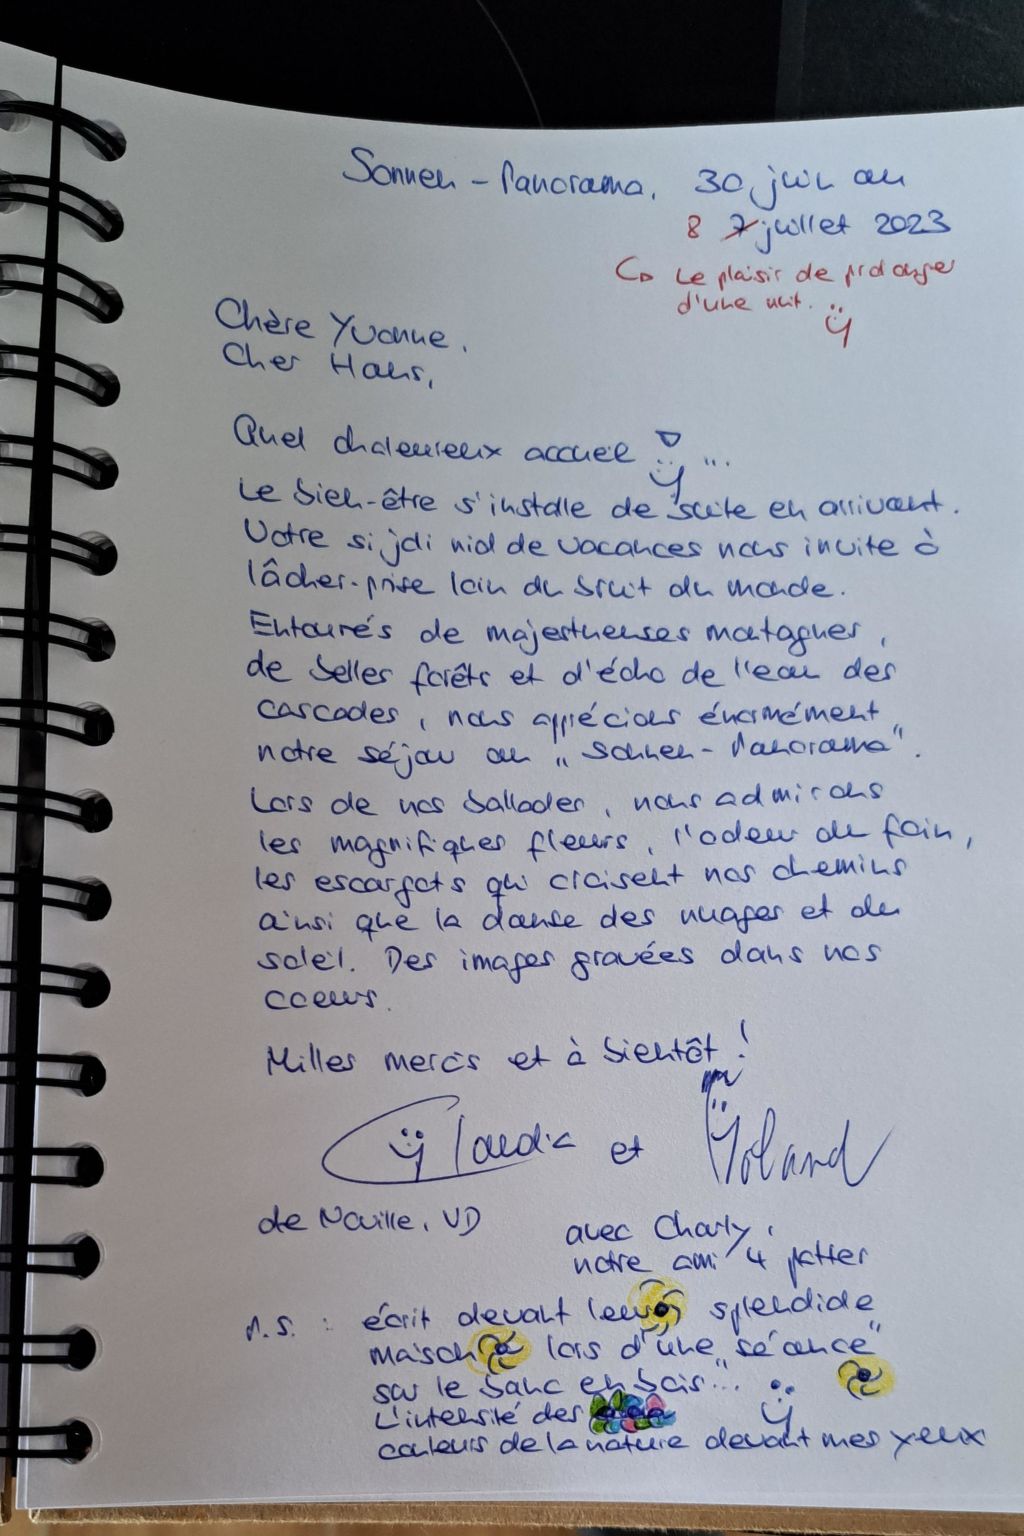 Sonnen-Panorama, 30 juin au
8 7 juillet 2023
Le plaisir de prolonger
d'une nuit.
Chère Yvonne,
Cher Hans,
Quel chaleureux accueil ...
Le bien-être s'installe de suite en arrivant.
Votre si joli nid de vacances nous invite à
lâcher-prise loin du bruit du monde.
Entourés de majestueuses montagnes,
de belles forêts et d'écho de l'eau des
cascades, nous apprécions énormément
notre séjour au „Sonnen-Panorama".
Lors de nos ballades, nous admirons
les magnifiques fleurs, l'odeur du foin,
les escargots qui croisent nos chemins
ainsi que la danse des nuages et du
soleil. Des images gravées dans nos
coeurs.
Milles mercis et à bientôt!
Claudia et Yoland
de Noville, VD
avec Charly,
notre ami 4 pattes
P.S. : écrit devant leur splendide
maison lors d'une „séance"
sur le banc en bois...
L'intensité des
couleurs de la nature devant mes yeux